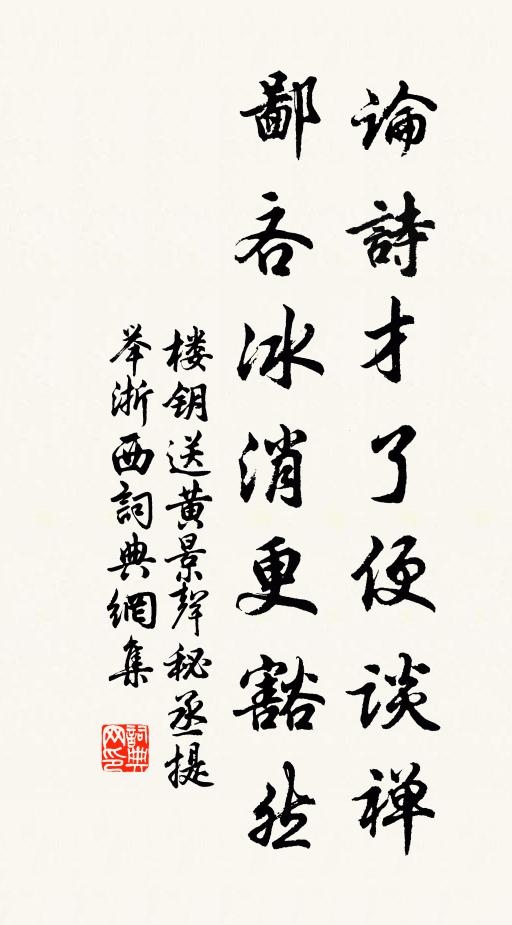 論詩才了便談禅
鄙吝冰消更豁然
楼钥送黄景聲秘丞提
举浙西詞典網集
詞典网印